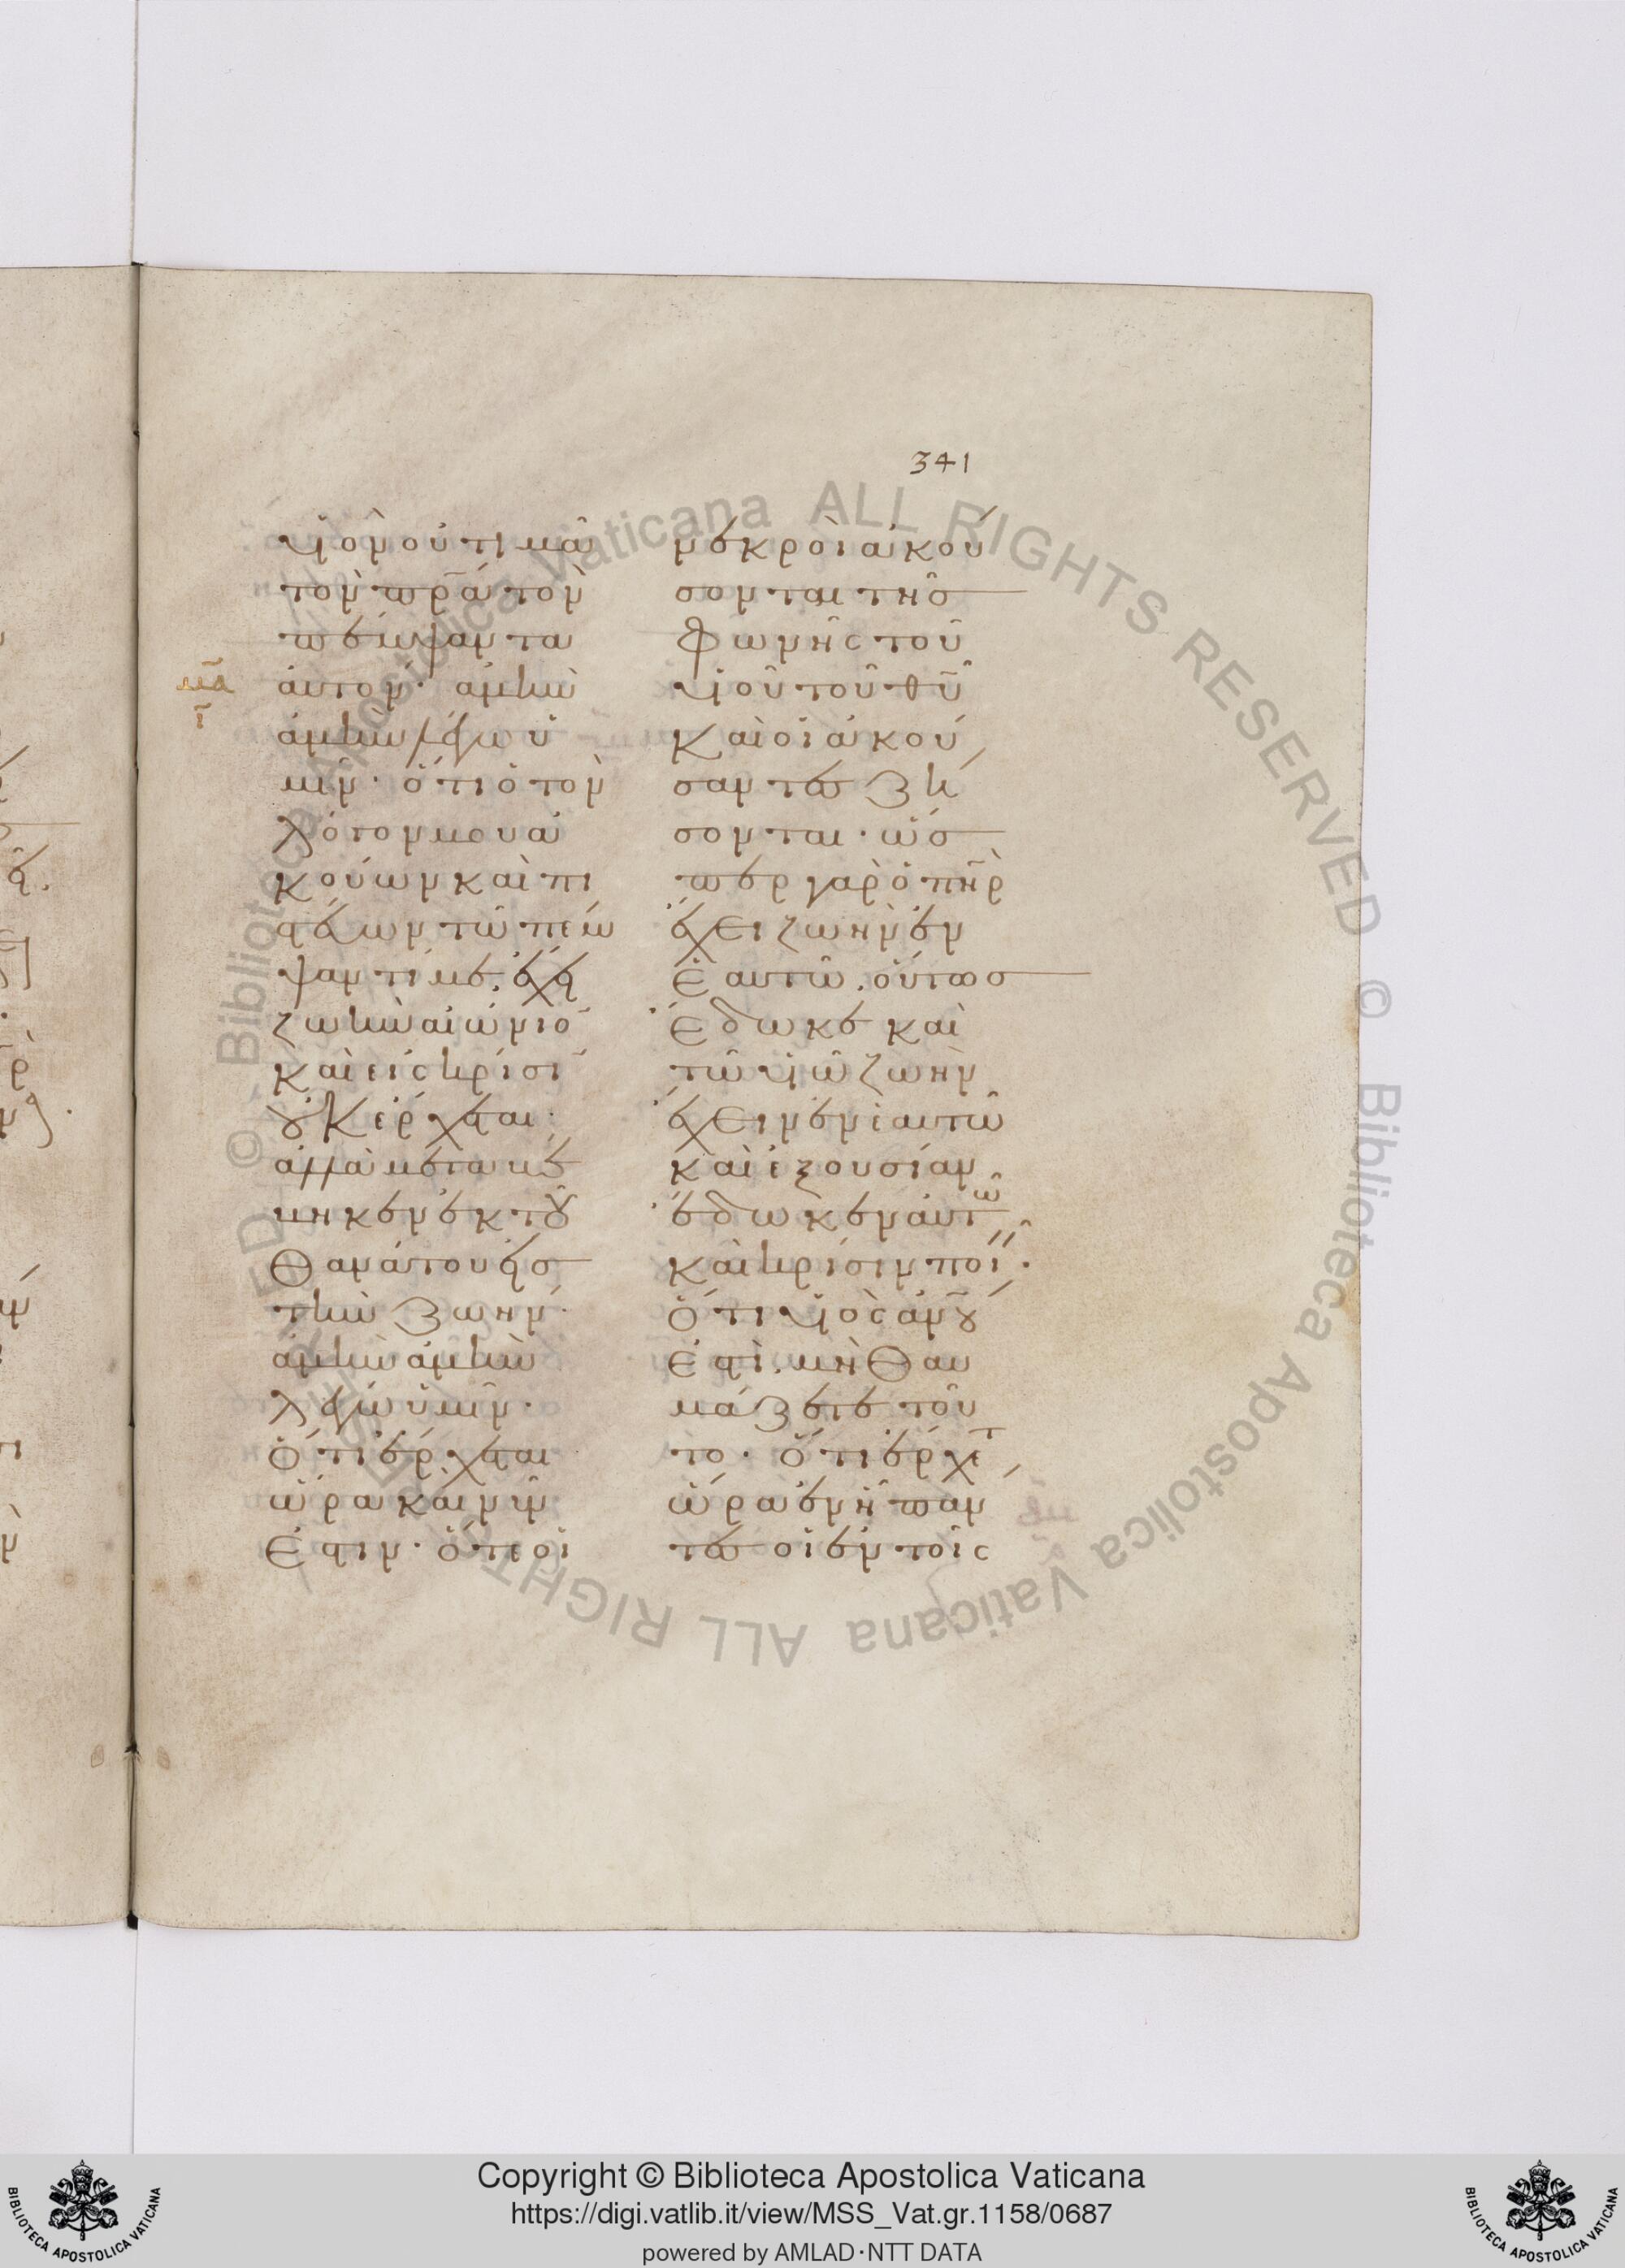 341
υἱὸν οὐ τιμᾶ
τὸν πρ̅α τὸν
πέμψαντα
αὐτόν· ἀμὴν
μ̅α
ι̅
ἀμὴν λέγω ὑ
μῖν· ὅτι ὁ τὸν
λόγον μου ἀ
κούων καὶ πι
στεύων τῶ πέμ
ψαντί με· ἔχει
ζωὴν αἰώνιο̅
καὶ εἰς κρίσι̅
οὐκ ἔρχεται·
ἀλλὰ μεταβέ
βηκεν ἐκ τοῦ
θανάτου εἰσ
τὴν ζωήν·
ἀμὴν ἀμὴν
λέγω ὑμῖν·
ὅτι ἔρχεται
ὥρα καὶ νῦν
ἐστιν· ὅτε οἱ
νεκροὶ ἀκού
σονται τῆσ
φωνῆς τοῦ
υἱοῦ τοῦ θ̅υ
καὶ οἱ ἀκού
σαντες ζή
σονται· ὥσ
περ γὰρ ὁ π̅ηρ
ἔχει ζωὴν ἐν
ἑαυτῶ· οὕτως
ἔδωκε καὶ
τῶ υἱῶ ζωὴν
ἔχειν ἐν ἑαυτῶ
καὶ ἐξουσίαν
ἔδωκεν αὐτῶ
καὶ κρίσιν ποι·
ὅτι υἱὸς ἀν̅ου
ἐστί· μὴ θαυ
μάζετε τοῦ
το· ὅτι ἔρχετ
ὥρα ἐν ἧ πάν
τες οἱ ἐν τοῖς
Copyright © Biblioteca Apostolica Vaticana
https://digi.vatlib.it/view/MSS_Vat.gr.1158/0687
powered by AMLAD·NTT DATA